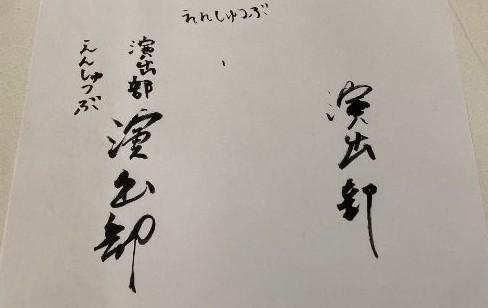 えんしゅつぶ
演出部
演出部
演出部
えんしゅつぶ